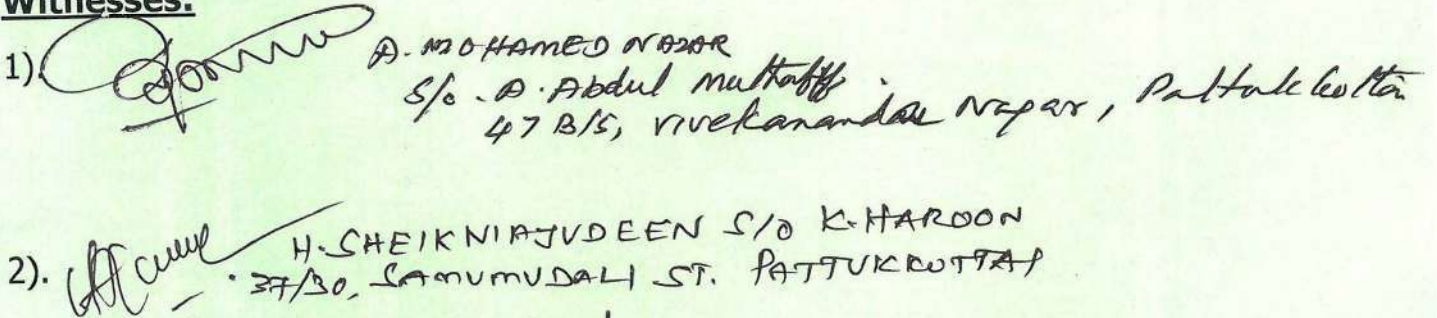 Witnesses:
1). A. MOHAMED NAZAR
S/o. A. Abdul Muthaliff.
47 B/5, Vivekanandar Nagar, Pattukkottai
2). H. SHEIKNIAJUDEEN S/O K. HAROON
37/30, SAMUMUDALI ST. PATTUKKOTTAI